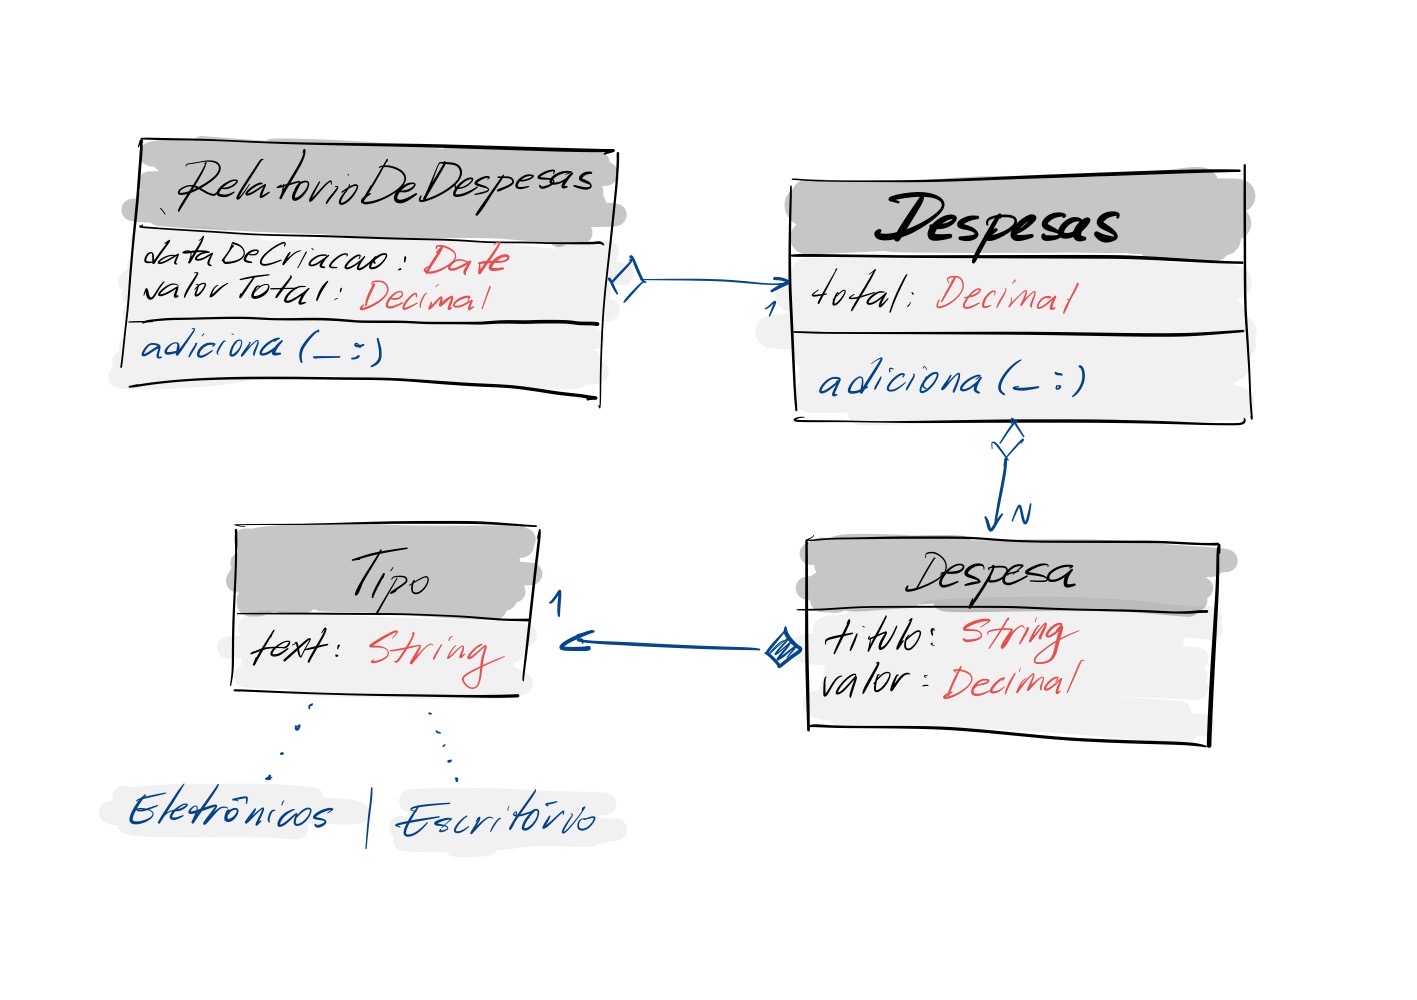 RelatorioDeDespesas
dataDeCriacao: Date
valorTotal: Decimal
adiciona(_:)
1
Despesas
total: Decimal
adiciona(_:)
N
Tipo
text: String
1
Despesa
titulo: String
valor: Decimal
Eletrônicos | Escritório